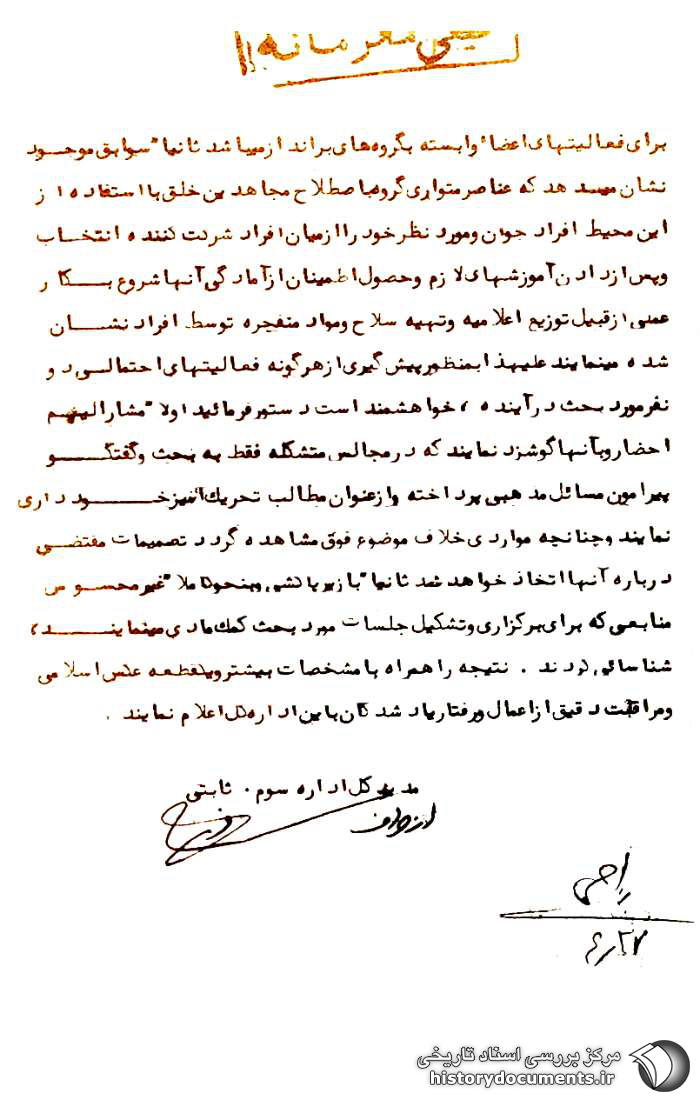 خیلی محرمانه
برای فعالیتهای اعضاء وابسته بگروه‌های برانداز میباشد ثانیا" سوابق موجود
نشان میدهد که عناصر متواری گروه باصطلاح مجاهدین خلق با استفاده از
این محیط افراد جوان و مورد نظر خود را از میان افراد شرکت کننده انتخاب
و پس از دادن آموزشهای لازم و حصول اطمینان از آمادگی آنها شروع بکار
عملی از قبیل توزیع اعلامیه و تهیه سلاح و مواد منفجره توسط افراد نشان
شده مینمایند علیهذا بمنظور پیش گیری از هرگونه فعالیتهای احتمالی دو
نفر مورد بحث در آینده، خواهشمند است دستور فرمائید اولا" مشارالیهم
احضار و بآنها گوشزد نمایند که در مجالس متشکله فقط به بحث و گفتگو
پیرامون مسائل مذهبی پرداخته و از عنوان مطالب تحریک آمیز خودداری
نمایند و چنانچه مواردی خلاف موضوع فوق مشاهده گردد تصمیمات مقتضی
درباره آنها اتخاذ خواهد شد ثانیا" با زیرباکشی و بنحو کاملا" غیرمحسوس
منابعی که برای برگزاری و تشکیل جلسات مورد بحث کمک مادی مینمایند،
شناسائی گردند. نتیجه را همراه با مشخصات بیشتر و یکقطعه عکس اسلامی
و مراقبت دقیق از اعمال و رفتار یاد شدگان باین اداره کل اعلام نمایند.
مدیر کل اداره سوم. ثابتی
از طرف
۴/۲۷
مرکز بررسی اسناد تاریخی
historydocuments.ir